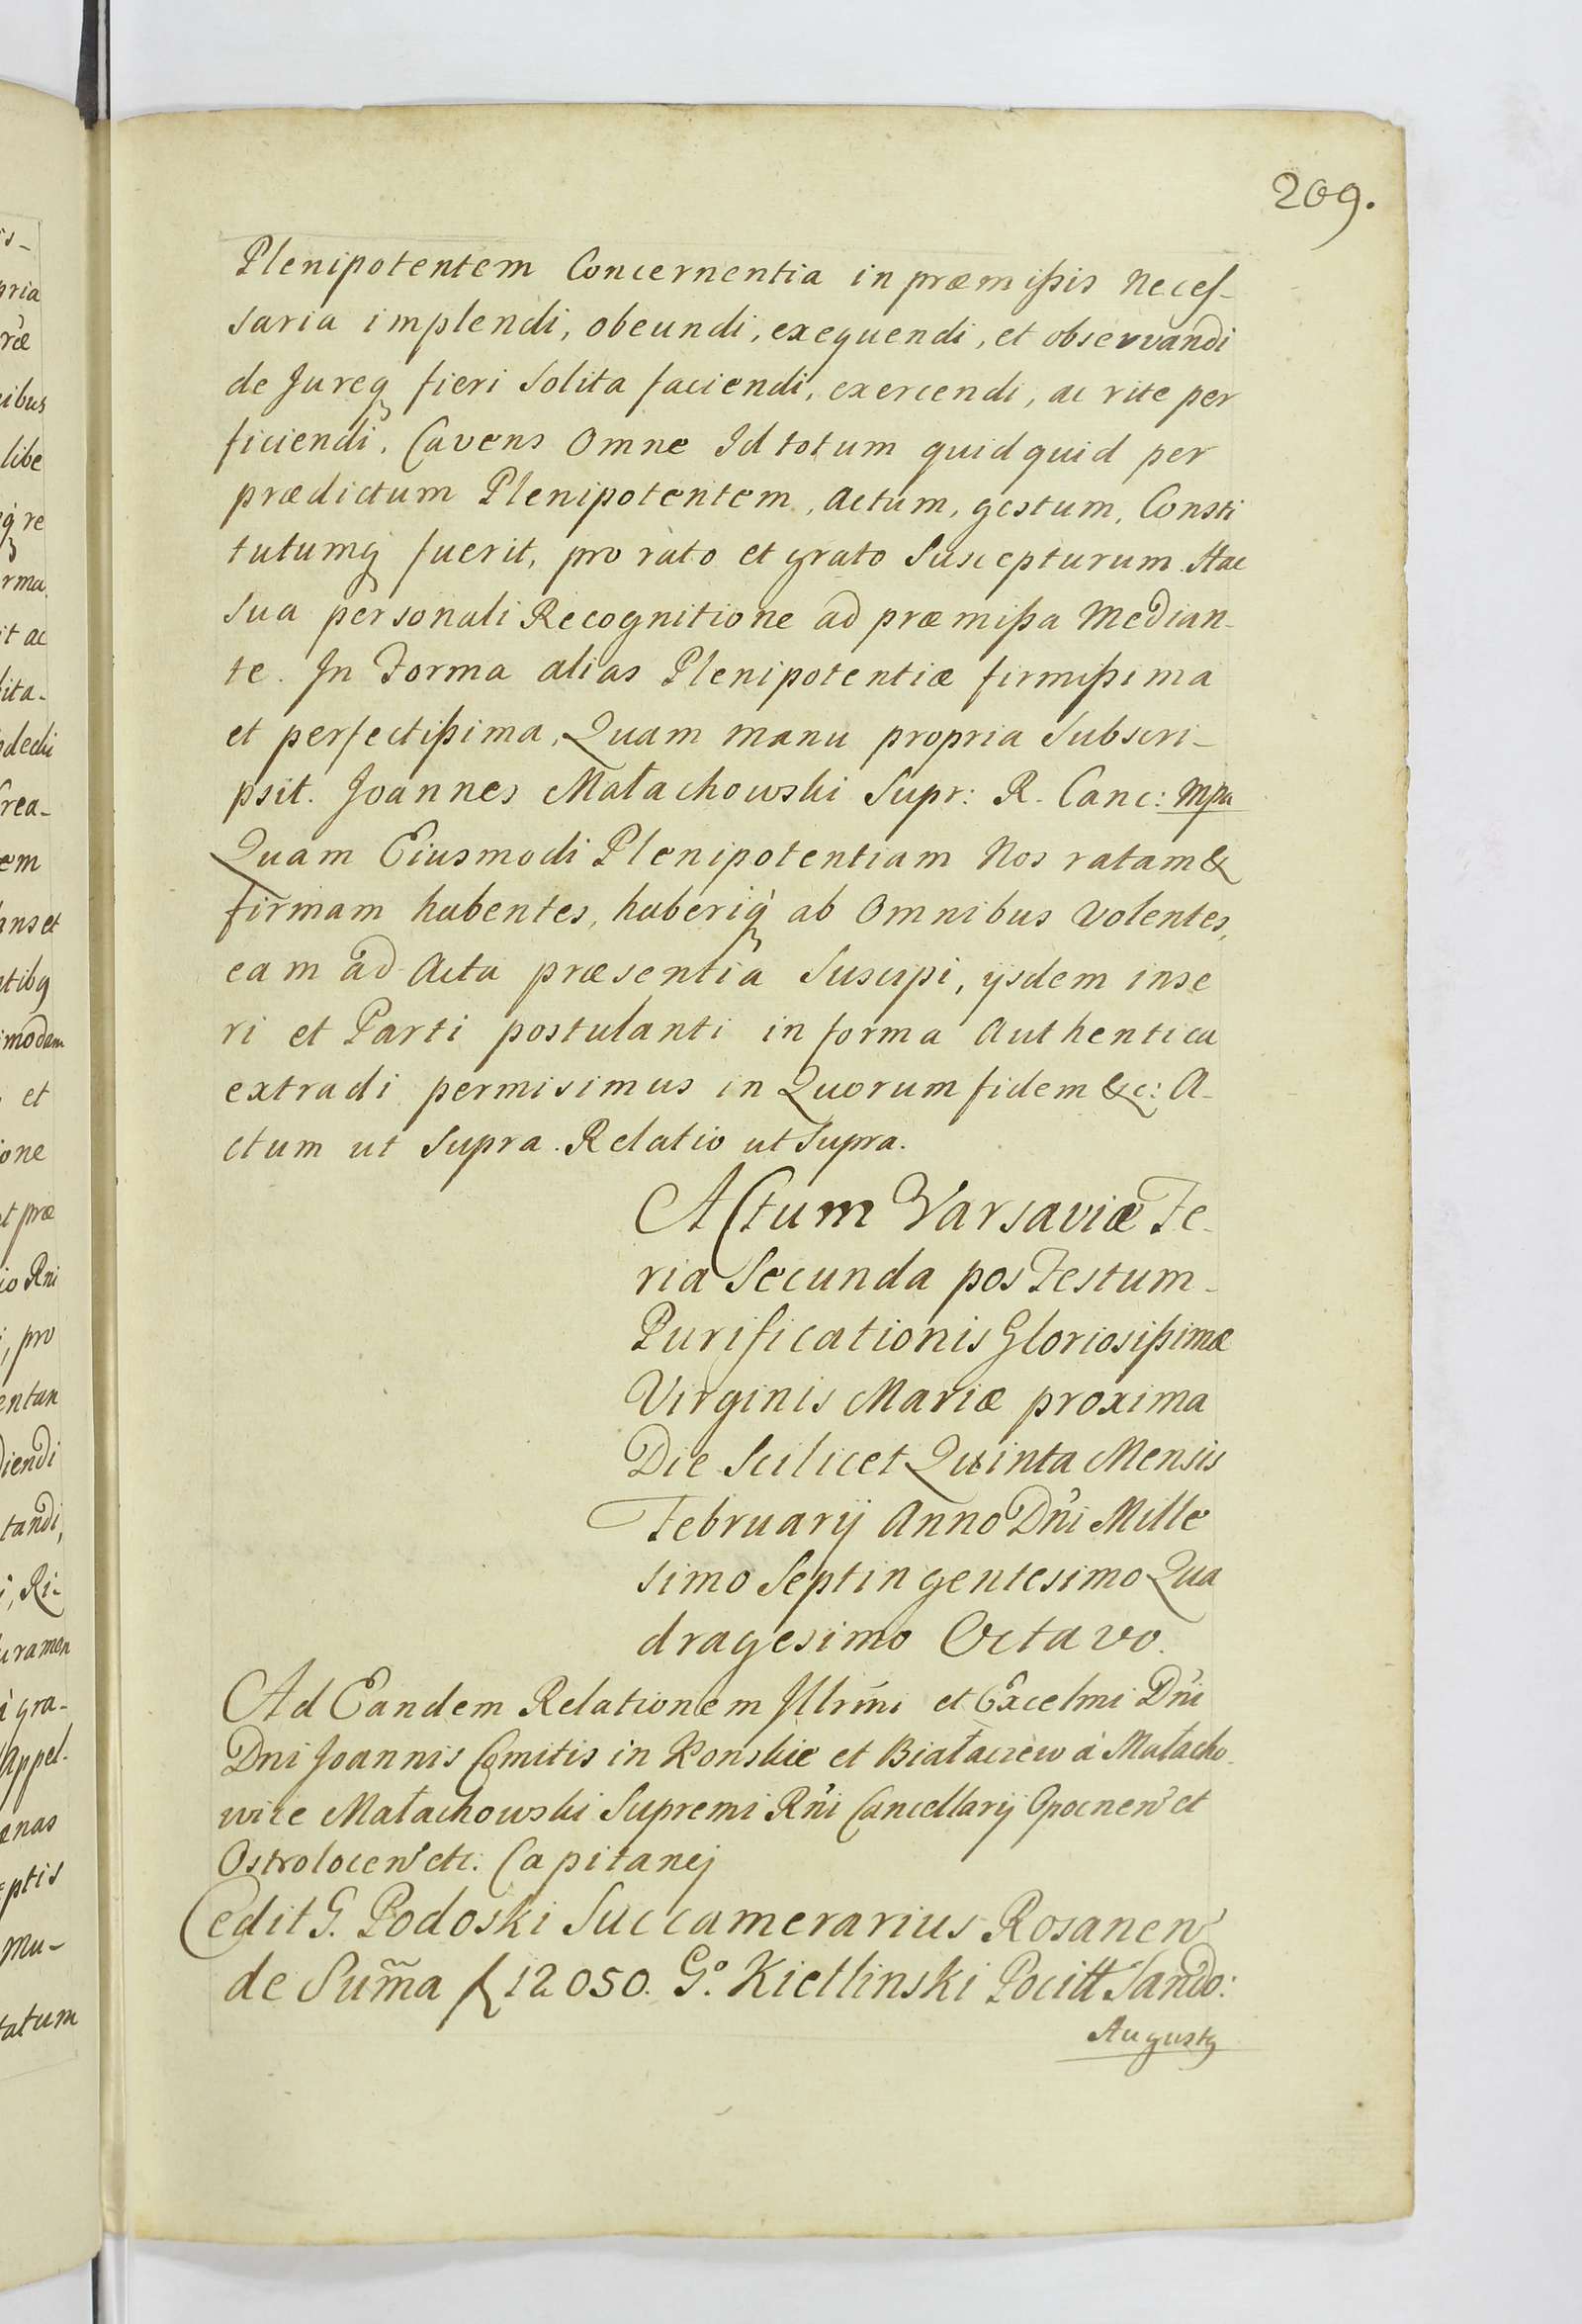 209.
Plenipotentem Concernentia in præmißis Neces-
saria implendi, obeundi, exequendi, et observandi
de Jureq fieri Solita faciendi, exercendi, ac rite per
ficiendi. Cavens Omne Id totum quidquid per
prædictum Plenipotentem, actum, gestum, Consti
tutumq fuerit, pro rato et grato Suscepturum. Hac
Sua personali Recognitione ad præmißa Median-
te. In Forma alias Plenipotentiæ firmißima
et perfectißima, Quam manu propria Subscri-
psit. Joannes Małachowski Supr: R. Canc: mpa
Quam Eiusmodi Plenipotentiam Nos ratam &
firmam habentes, haberiq́ ab Omnibus Volentes,
eam ad Acta præsentia Suscipi, ijsdem inse
ri et Parti postulanti in forma Authentica
extradi permisimus in Quorum fidem &c: A-
ctum ut Supra. Relatio ut Supra.
Actum Varsaviæ Fe-
ria Secunda pos Festum
Purificationis Gloriosißimæ
Virginis Mariæ proxima
Die Scilicet Quinta Mensis
Februarij Anno Dni Mille
simo Septingentesimo Qua
dragesimo Octavo.
Ad Eandem Relationem Illrmi et Excelmi Dni
Dni Joannis Comitis in Konskie et Białaczew à Małacho-
wice Małachowski Supremi Rni Cancellarij Opocnen et
Ostrolocen etc. Capitanej
Cedit G. Podoski Succamerarius Rosanen
de Sum̃a f 12050. Go. Kietlinski Pocitt Sando:
Augustq
is-
pria
ræ
libe
q́ re
rma
it ac
ita-
rea-
em
ans et
ntibq
modam
et
ione
et præ
io Rni
, pro
entan
diendi
tandi,
; Ri-
uramen
à gra-
Appel-
ænas
eptis
mu-
tatum